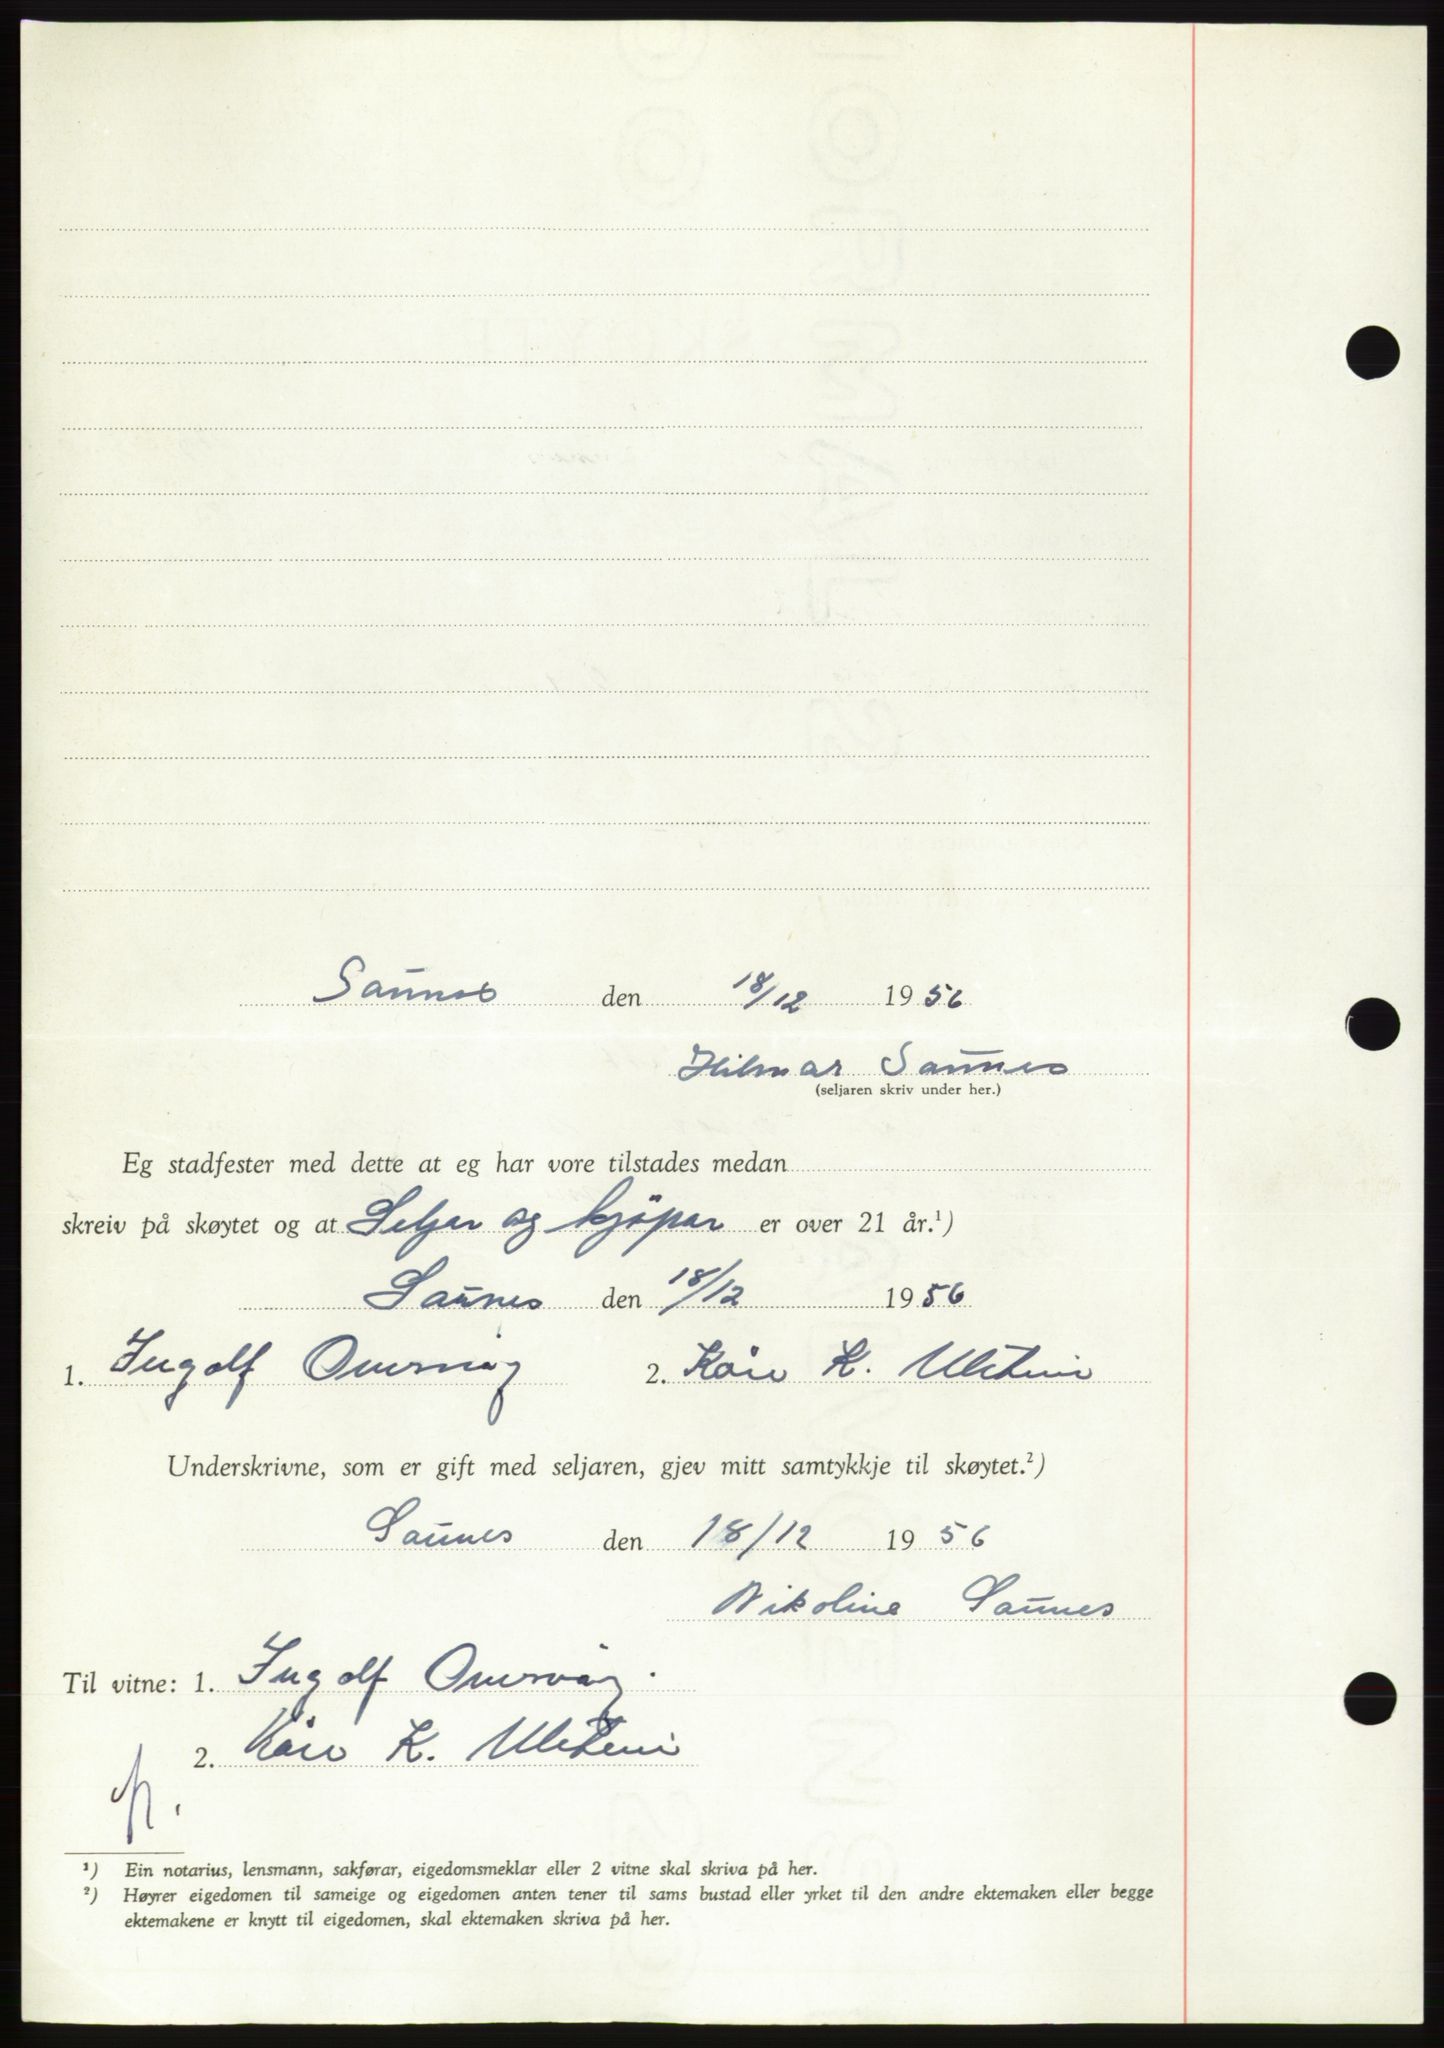 Saunes den 18/12 1956
Hilmar Saunes
(seljaren skriv under her.)
Eg stadfester med dette at eg har vore tilstades medan
skreiv på skøytet og at Seljar og kjöpar er over 21 år.¹)
Saunes den 18/12 1956
1. Ingolf 2. Kåre K. Ulstein
Underskrivne, som er gift med seljaren, gjev mitt samtykkje til skøytet.²)
Saunes den 18/12 1956
Nikoline Saunes
Til vitne: 1. Ingolf
2. Kåre K. Ulstein
¹) Ein notarius, lensmann, sakførar, eigedomsmeklar eller 2 vitne skal skriva på her.
²) Høyrer eigedomen til sameige og eigedomen anten tener til sams bustad eller yrket til den andre ektemaken eller begge
ektemakene er knytt til eigedomen, skal ektemaken skriva på her.